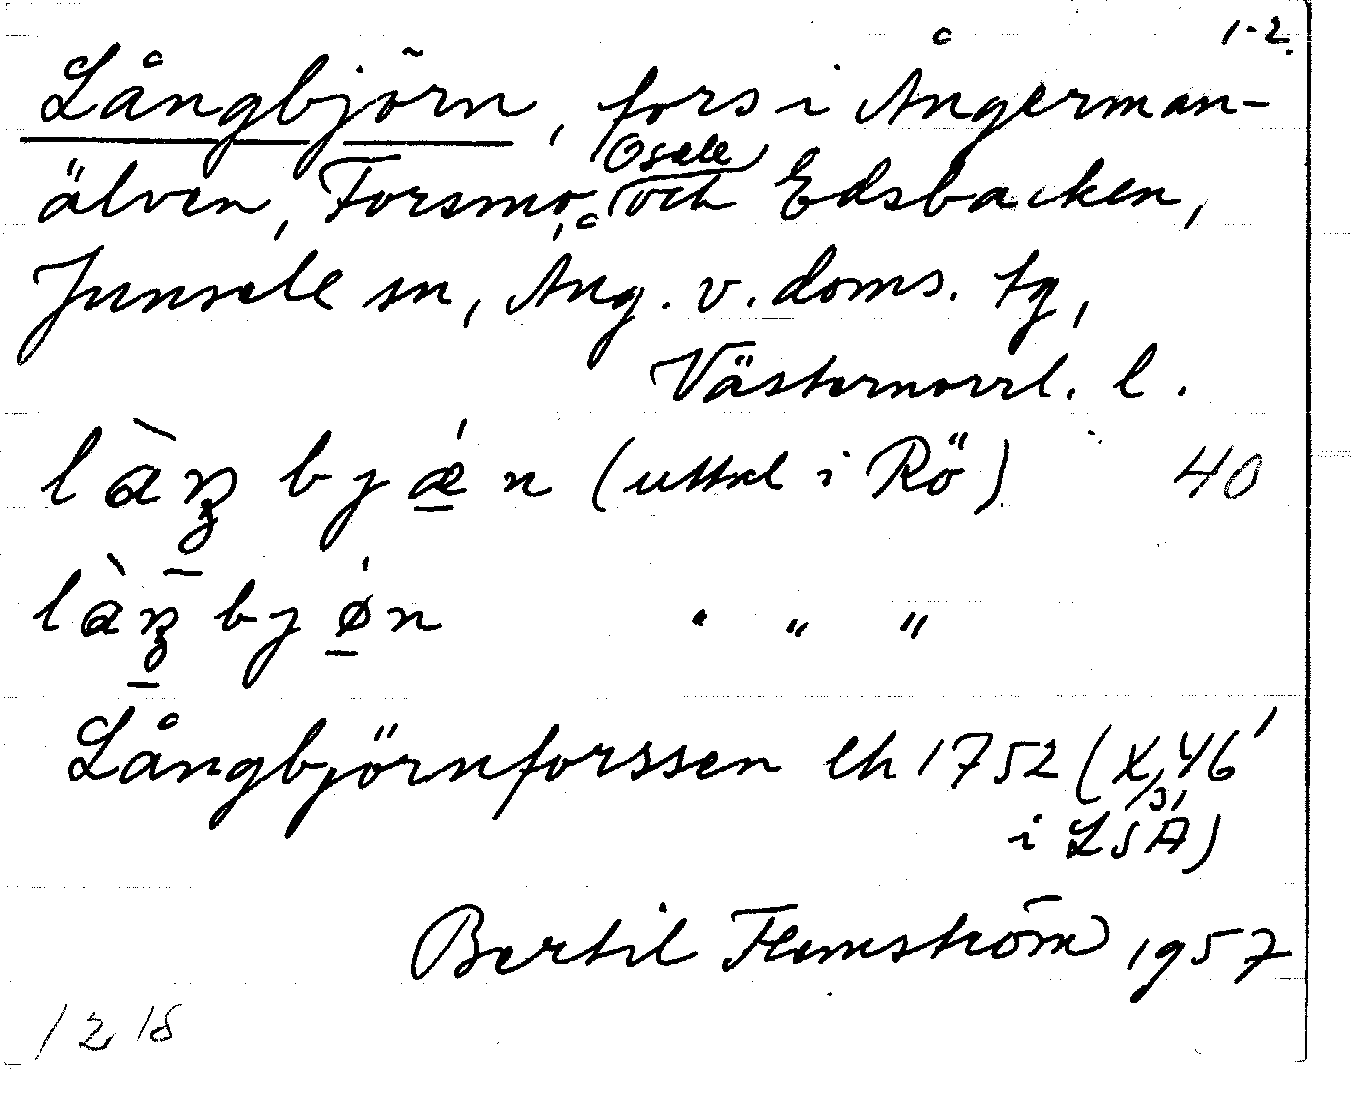 1-2.
Långbjörn, fors i Ångerman-
älven, Forsmo, Osele och Edsbacken,
Junsele sn, Ång. v. doms. tg,
Västernorrl. l.
làŋ bjǽn (uttal i Rö) 40
làŋ bjǿn " " "
Långbjörnforssen lh 1752 (X, 46
i LSA)
Bertil Flemström 1957
1218